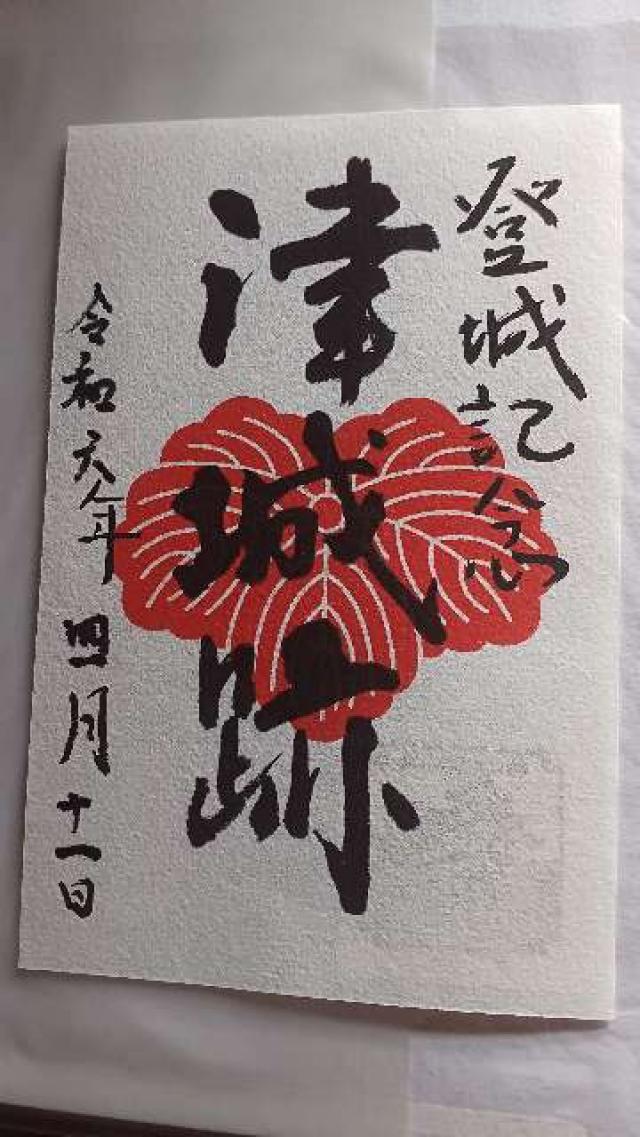 登城記念
津城跡
令和六年四月十一日